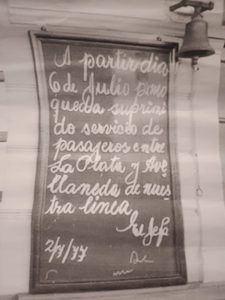 A partir dia
6 de Julio pmo
queda suprimi
do servicio de
pasajeros entre
La Plata y Ave
llaneda de nues
tra linea
El Jefe
2/7/77